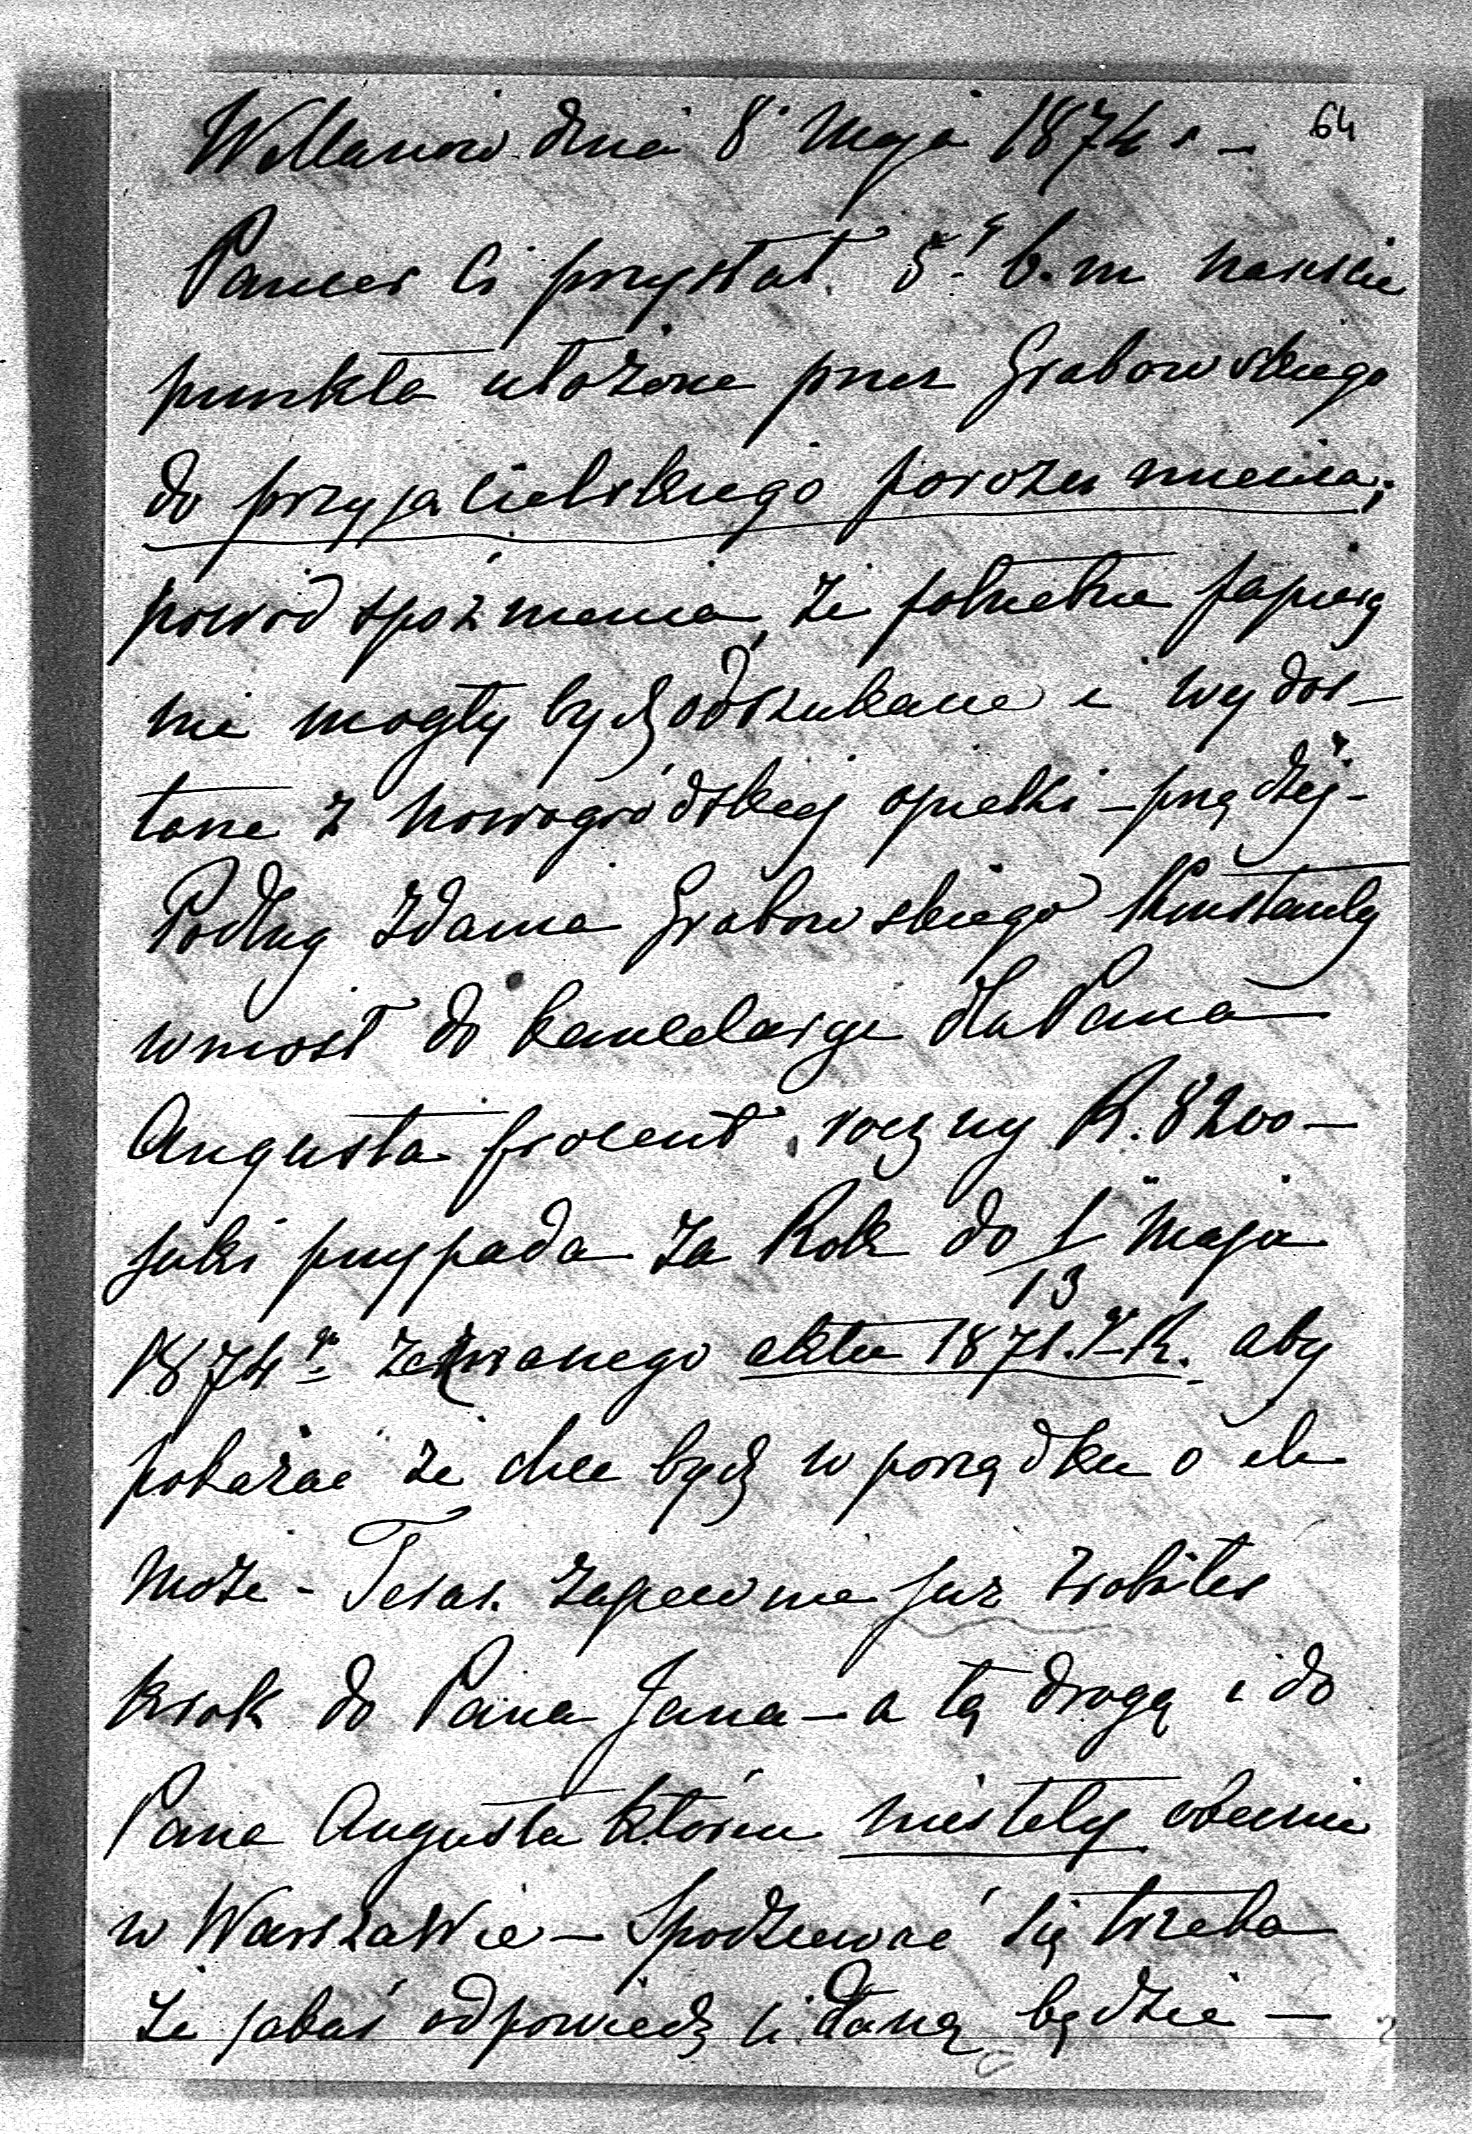 Willanow dnia 8 Maja 1874 r – 64
Pancer Ci przysłał 5.º b. m nareszcie
punkta ułożone przez Grabowskiego
do przyjacielskiego porozumienia;
powód spóznienia, że potrzebne papiery
nie mogły bydź odszukane i wydos-
tane z Nowogródskiej opieki – prędzej –
Podług zdania Grabowskiego Konstanty
wniosł do kancelaryi dla Pana
Augusta procent roczny R. 8200 –
jaki przypada za Rok do 1/13 Maja
1874 go zerwanego aktu 1871. go R. aby
pokazać że chce bydź w porządku o ile
może – Teraz zapewne juz zrobiłeś
krok do Pana Jana – a tą drogą i do
Pana Augusta który niestety obecnie
w Warszawie – Spodziewać się trzeba
że jakaś odpowiedź ci daną będzie –